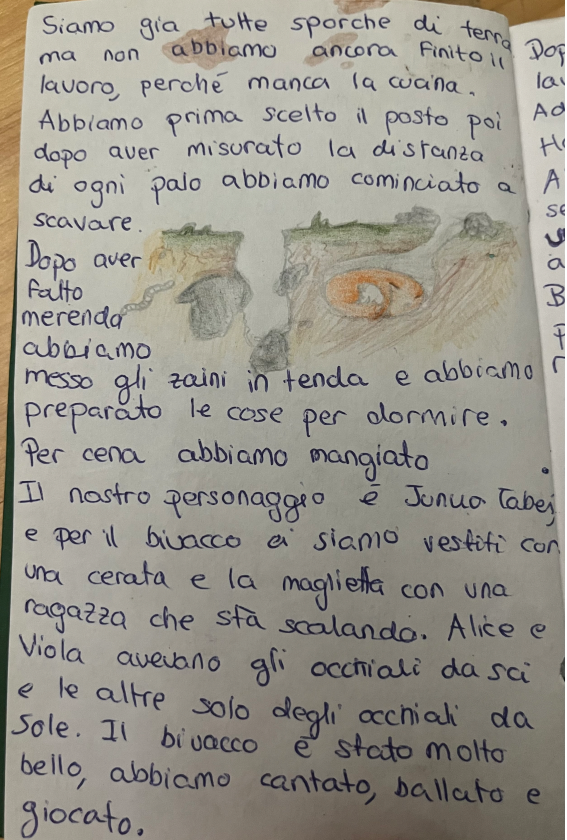 Siamo già tutte sporche di terra
ma non abbiamo ancora finito il
lavoro, perché manca la cucina.
Abbiamo prima scelto il posto poi
dopo aver misurato la distanza
di ogni palo abbiamo cominciato a
scavare.
Dopo aver
fatto
merenda
abbiamo
messo gli zaini in tenda e abbiamo
preparato le cose per dormire.
Per cena abbiamo mangiato
Il nostro personaggio è Junuo Tabei
e per il bivacco ci siamo vestiti con
una cerata e la maglietta con una
ragazza che sta scalando. Alice e
Viola avevano gli occhiali da sci
e le altre solo degli occhiali da
sole. Il bivacco è stato molto
bello, abbiamo cantato, ballato e
giocato.